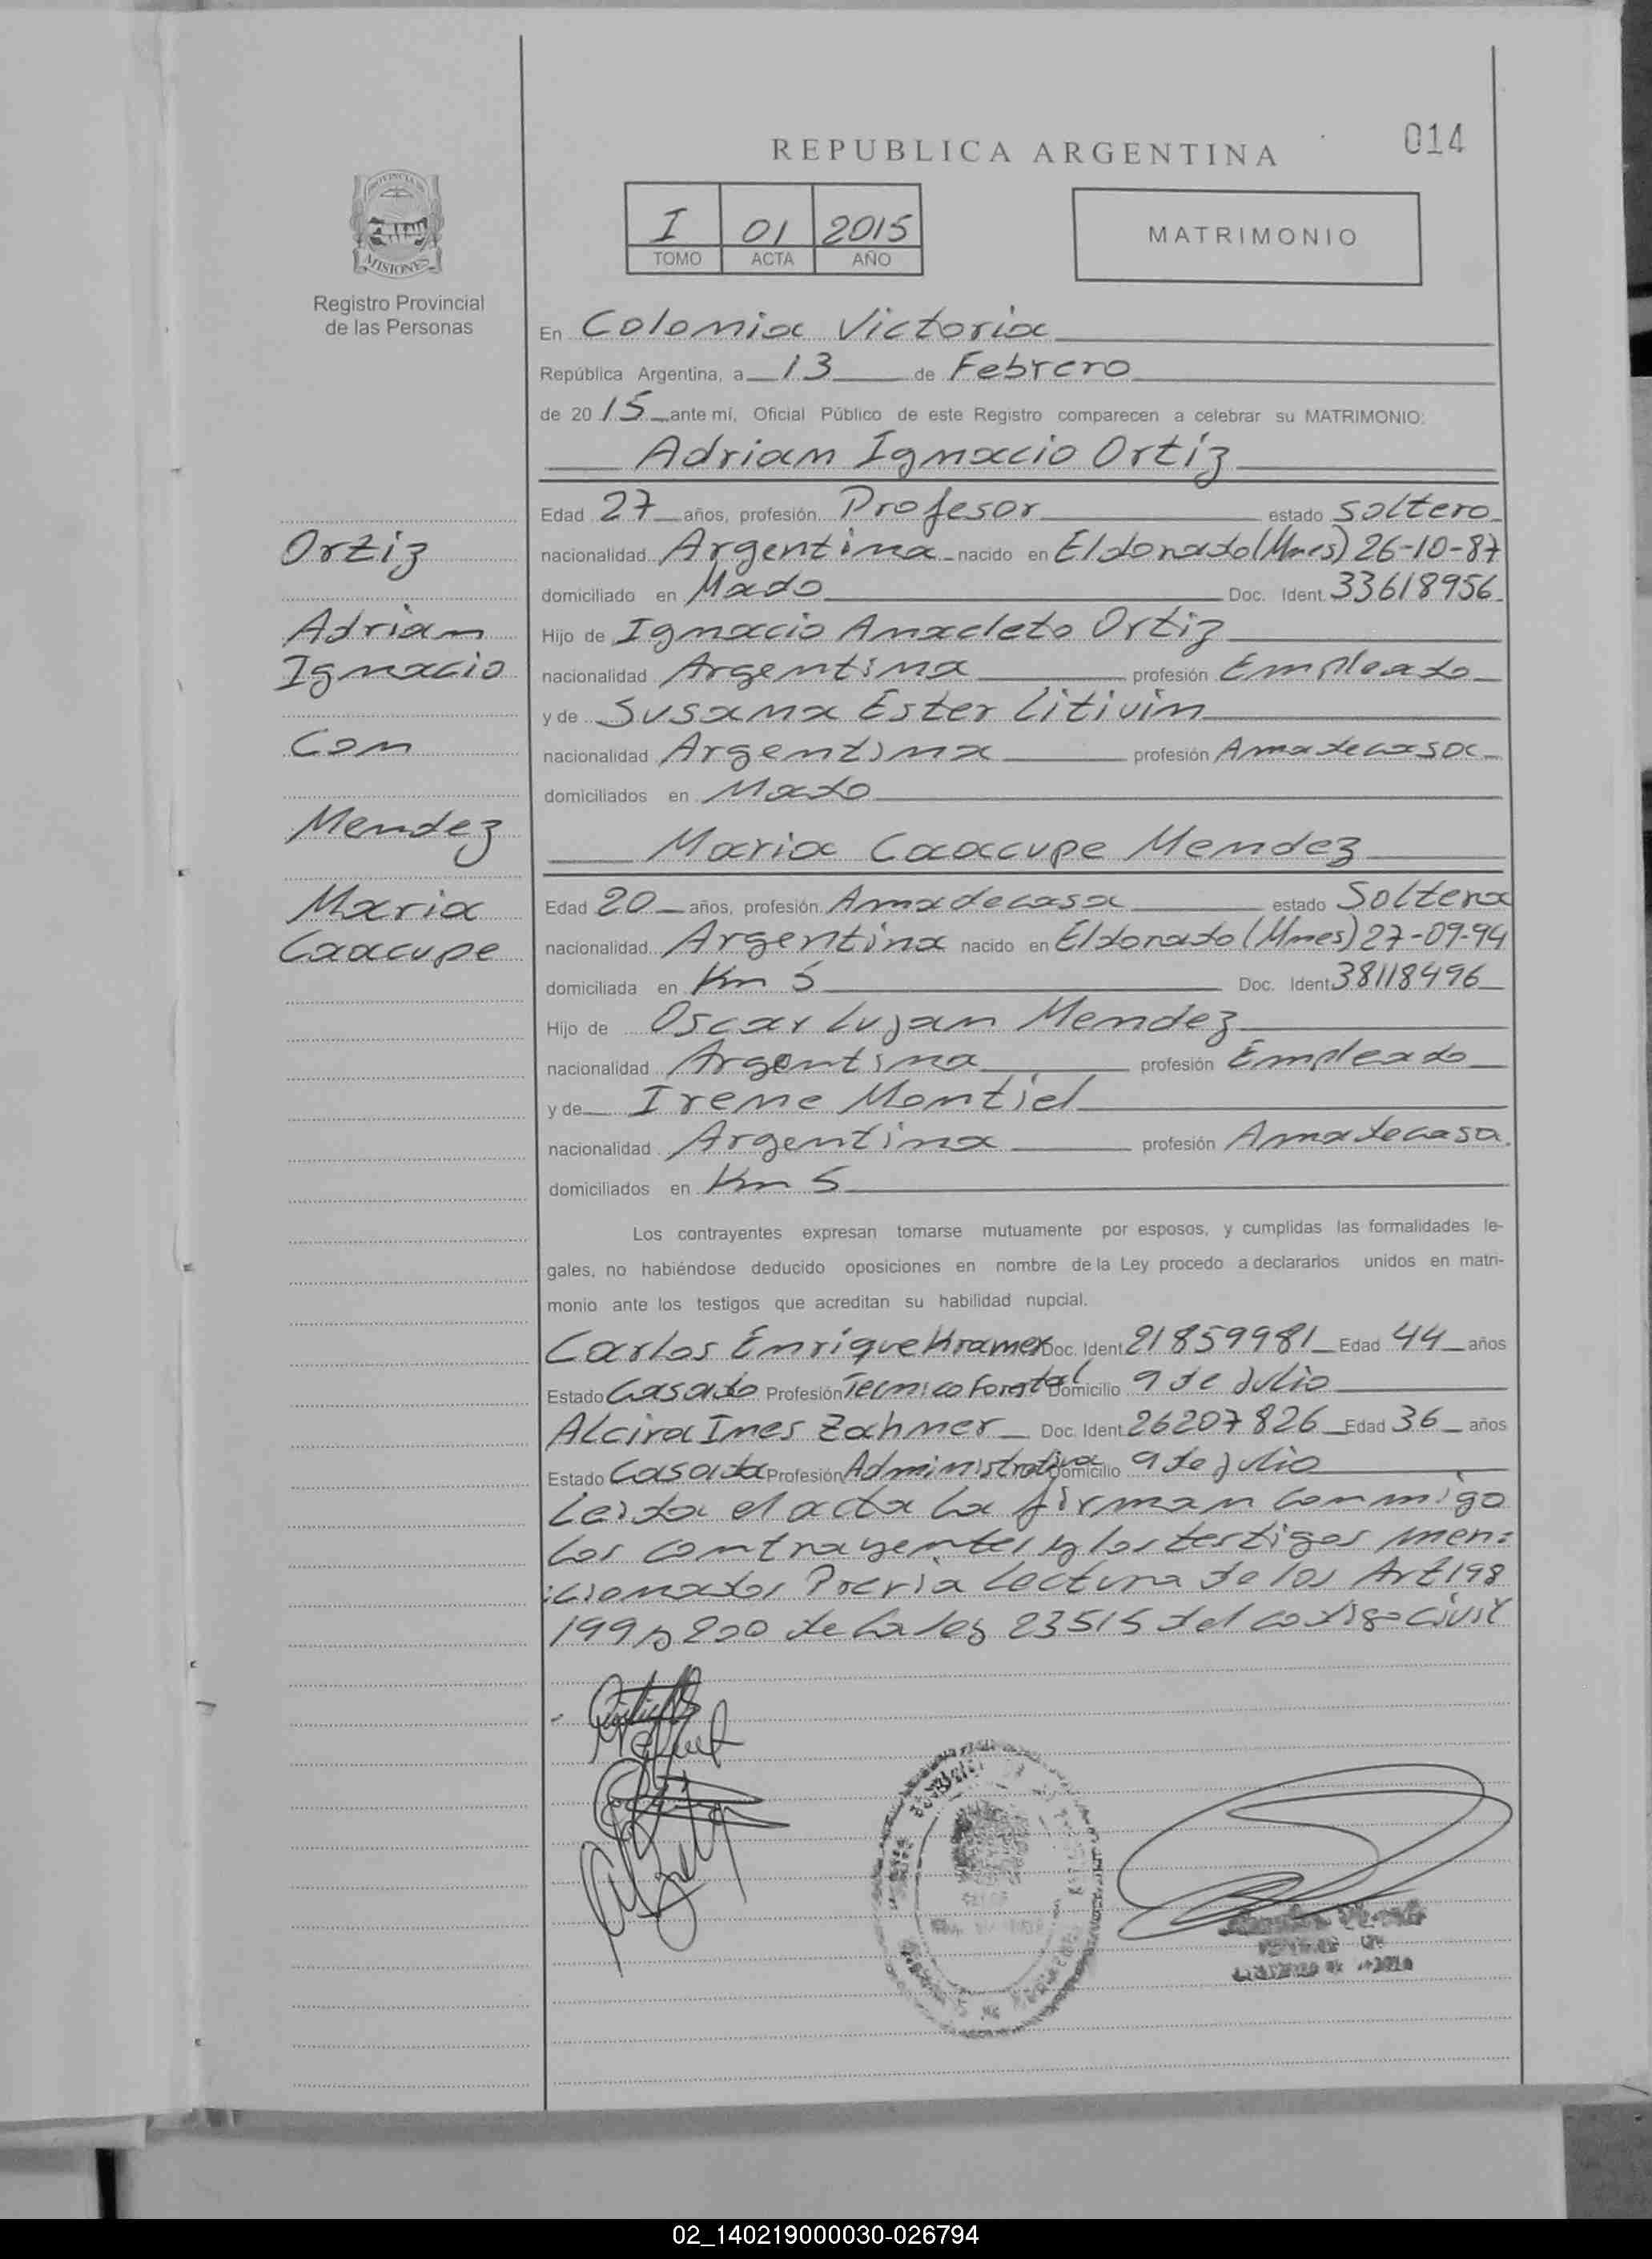 REPUBLICA ARGENTINA
014
PROVINCIA DE
MISIONES
Registro Provincial
de las Personas
I 01 2015
TOMO ACTA AÑO
MATRIMONIO
En Colonia Victoria
República Argentina, a 13 de Febrero
de 20 15 ante mí, Oficial Público de este Registro comparecen a celebrar su MATRIMONIO:
Adrian Ignacio Ortiz
Edad 27 años, profesión Profesor estado Soltero
nacionalidad Argentina nacido en Eldorado (Mnes) 26-10-87
domiciliado en Mado Doc. Ident. 33618956
Hijo de Ignacio Anacleto Ortiz
nacionalidad Argentina profesión Empleado
y de Susana Ester Litivin
nacionalidad Argentina profesión Ama de casa
domiciliados en Mado
Maria Caacupe Mendez
Edad 20 años, profesión Ama de casa estado Soltera
nacionalidad Argentina nacido en Eldorado (Mnes) 27-09-94
domiciliada en Km 5 Doc. Ident 38118496
Hijo de Oscar Lujan Mendez
nacionalidad Argentina profesión Empleado
y de Irene Montiel
nacionalidad Argentina profesión Ama de casa.
domiciliados en Km 5
Ortiz
Adrian
Ignacio
Con
Mendez
Maria
Caacupe
Los contrayentes expresan tomarse mutuamente por esposos, y cumplidas las formalidades le-
gales, no habiéndose deducido oposiciones en nombre de la Ley procedo a declararlos unidos en matri-
monio ante los testigos que acreditan su habilidad nupcial.
Carlos Enrique Kramer Doc. Ident 21859981 Edad 44 años
Estado Casado Profesión Tecnico Forestal Domicilio 9 de Julio
Alcira Ines Zahner Doc. Ident 26207826 Edad 36 años
Estado Casada Profesión Administrativa Domicilio 9 de Julio
Leida el acta la firman conmigo
los contrayentes y los testigos men=
=cionados Previa lectura de los Art 198
199 y 200 de la ley 23515 del codigo civil
02_140219000030-026794